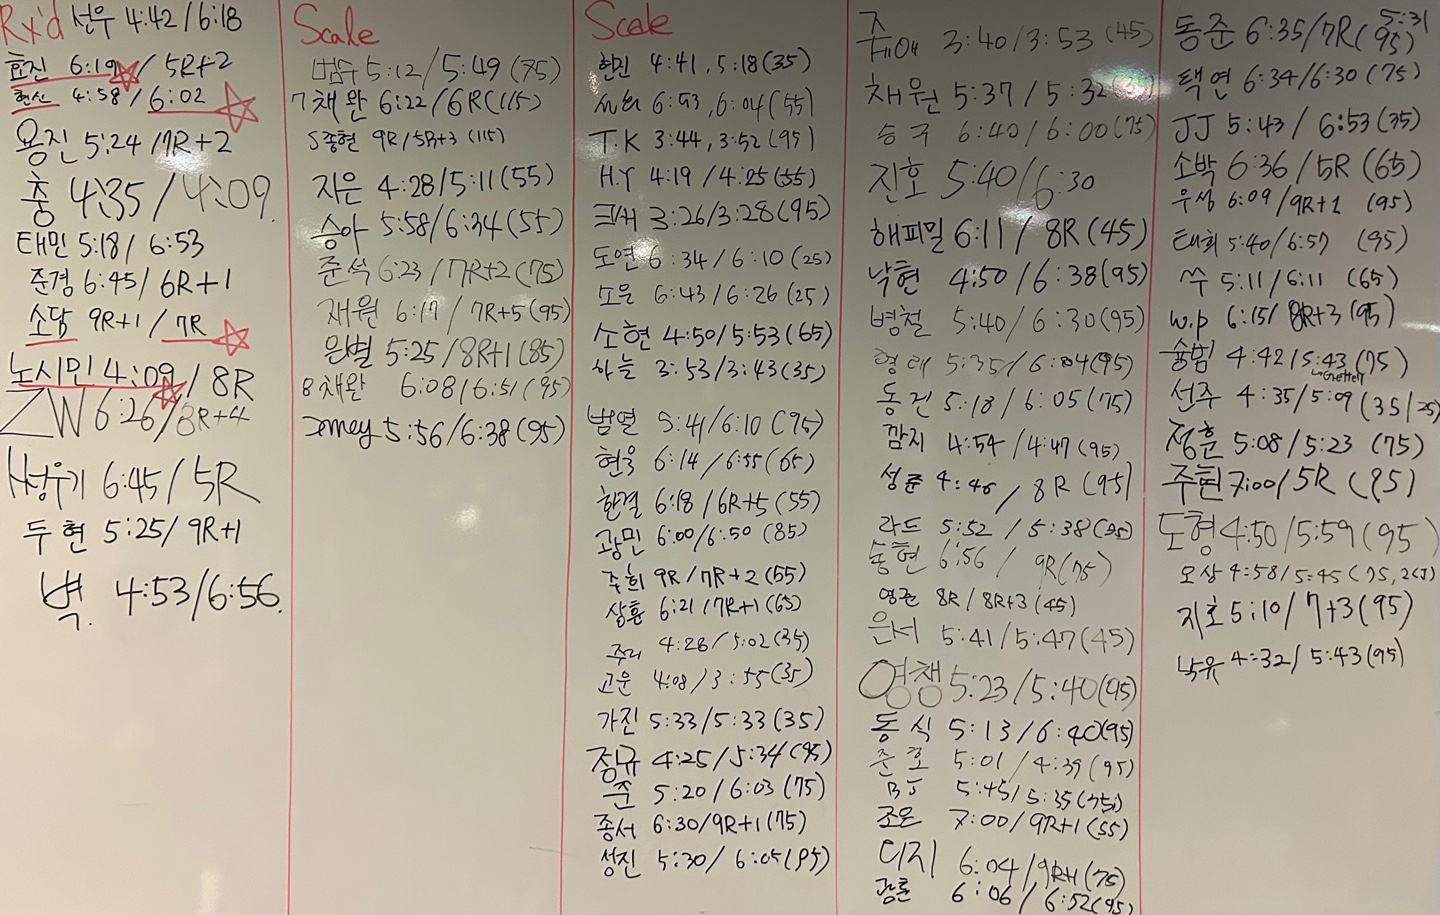 Rx'd 선우 4:42/6:18
효진 6:19 / 5R+2
현산 4:58/6:02
용진 5:24/7R+2
충 4:35/4:09
태민 5:18/6:53
준경 6:45/6R+1
소담 9R+1/7R
노시민 4:09/8R
ZW 6:26/8R+4
6:45/5R
두현 5:25/9R+1
벽. 4:53/6:56
Scale
범수 5:12/5:49 (75)
7 채완 6:22/6R(115)
S 종현 9R/5R+3 (115)
지은 4:28/5:11(55)
승아 5:58/6:34(55)
준석 6:23/7R+2(75)
재원 6:17/7R+5(95)
은별 5:25/8R+1(85)
8 채완 6:08/6:51(95)
5:56/6:38(95)
Scale
현진 4:41, 5:18(35)
6:53, 6:04(55)
T.K 3:44, 3:52(95)
H.Y 4:19/4:25(55)
3:26/3:28(95)
도연 6:34/6:10(25)
도운 6:43/6:26(25)
소현 4:50/5:53(65)
하늘 3:53/3:43(35)
범열 5:41/6:10(75)
현웅 6:14/6:55(65)
한결 6:18/6R+5(55)
광민 6:00/6:50(85)
주희 9R/7R+2(55)
상훈 6:21/7R+1(65)
주리 4:28/5:02(35)
고운 4:08/3:55(35)
가진 5:33/5:33(35)
정규 4:25/5:34(95)
준 5:20/6:03(75)
종서 6:30/9R+1(75)
성진 5:30/6:05(95)
3:40/3:53(45)
채원 5:37/5:32
승구 6:40/6:00(75)
진호 5:40/6:30
해피밀 6:11/8R(45)
낙현 4:50/6:38(95)
병철 5:40/6:30(95)
형래 5:35/6:04(95)
동건 5:18/6:05(75)
깜지 4:54/4:47(95)
성준 4:46/8R(95)
라드 5:52/5:38(95)
동현 6:56/9R(75)
영권 8R/8R+3(45)
은서 5:41/5:47(45)
영챙 5:23/5:40(95)
동식 5:13/6:40(95)
준호 5:01/4:39(95)
BJ 5:45/5:35(75)
조은 7:00/9R+1(55)
디지 6:04/9R+1(75)
광훈 6:06/6:52(95)
5:31
동준 6:35/7R(95)
택연 6:34/6:30(75)
JJ 5:43/6:53(35)
소박 6:36/5R(65)
우성 6:09/9R+1(95)
태희 5:40/6:57(95)
쑤 5:11/6:11(65)
W.P 6:15/8R+3(95)
숭범 4:42/5:43(75)
선주 4:35/5:09(35/25)
정훈 5:08/5:23(75)
주현 7:00/5R
도형 4:50/5:59(95)
오상 4:58/5:45
지호 5:10/7+3(95)
낙유 4:32/5:43(95)